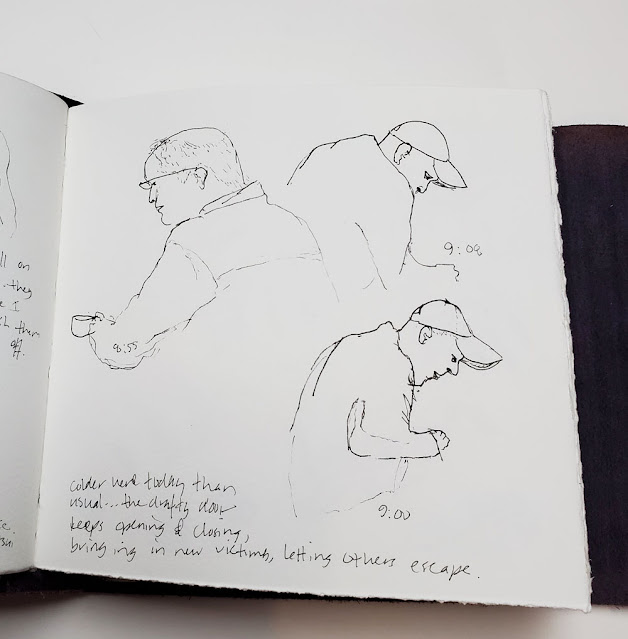 ll on
they
e I
sh them
off.
e.
9:08
8:55
9:00
colder here today than
usual...the drafty door
keeps opening & closing,
bringing in new victims, letting others escape.